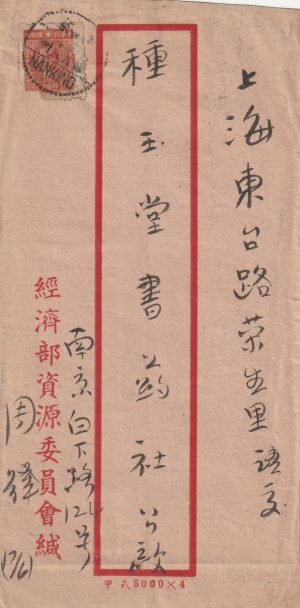 上海東台路荣生里 请交
種玉堂書药社公啟
南京白下路122号
經濟部資源委員會緘
周
NANKING
甲式5000×4